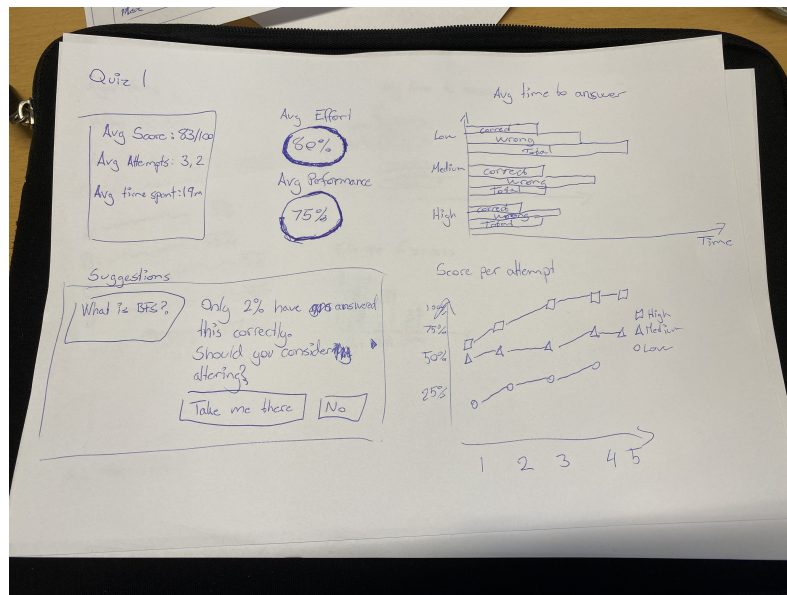 Quiz 1
Avg Score: 83/100
Avg Attempts: 3,2
Avg time spent: 19m
Avg Effort
80%
Avg Peformance
75%
Avg time to answer
Low
correct
Wrong
Total
Medium
correct
Wrong
Total
High
correct
Wrong
Total
Time
Suggestions
What is BFS?
Only 2% have answered
this correctly.
Should you consider
altering?
Take me there
No
Score per attempt
100%
75%
50%
25%
High
Medium
Low
1 2 3 4 5